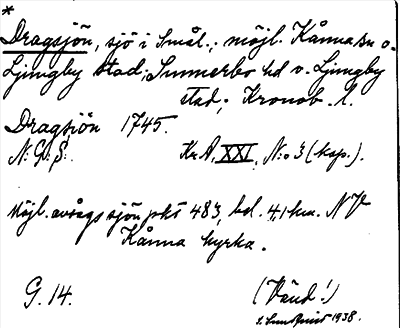 *
Dragsjön, sjö i Smål.; möjl. Kånna sn o.
Ljungby stad; Sunnerbo hd o. Ljungby
stad; Kronob. l.
Dragsjön 1745.
N: G: S: Kr. A, XXI, N:o 3 (kop.).
Möjl. avsågs sjön pkt 483, bel. 4,1 km. NV
Kånna kyrka.
G. 14. (Vänd!)
S. Sundquist 1938.